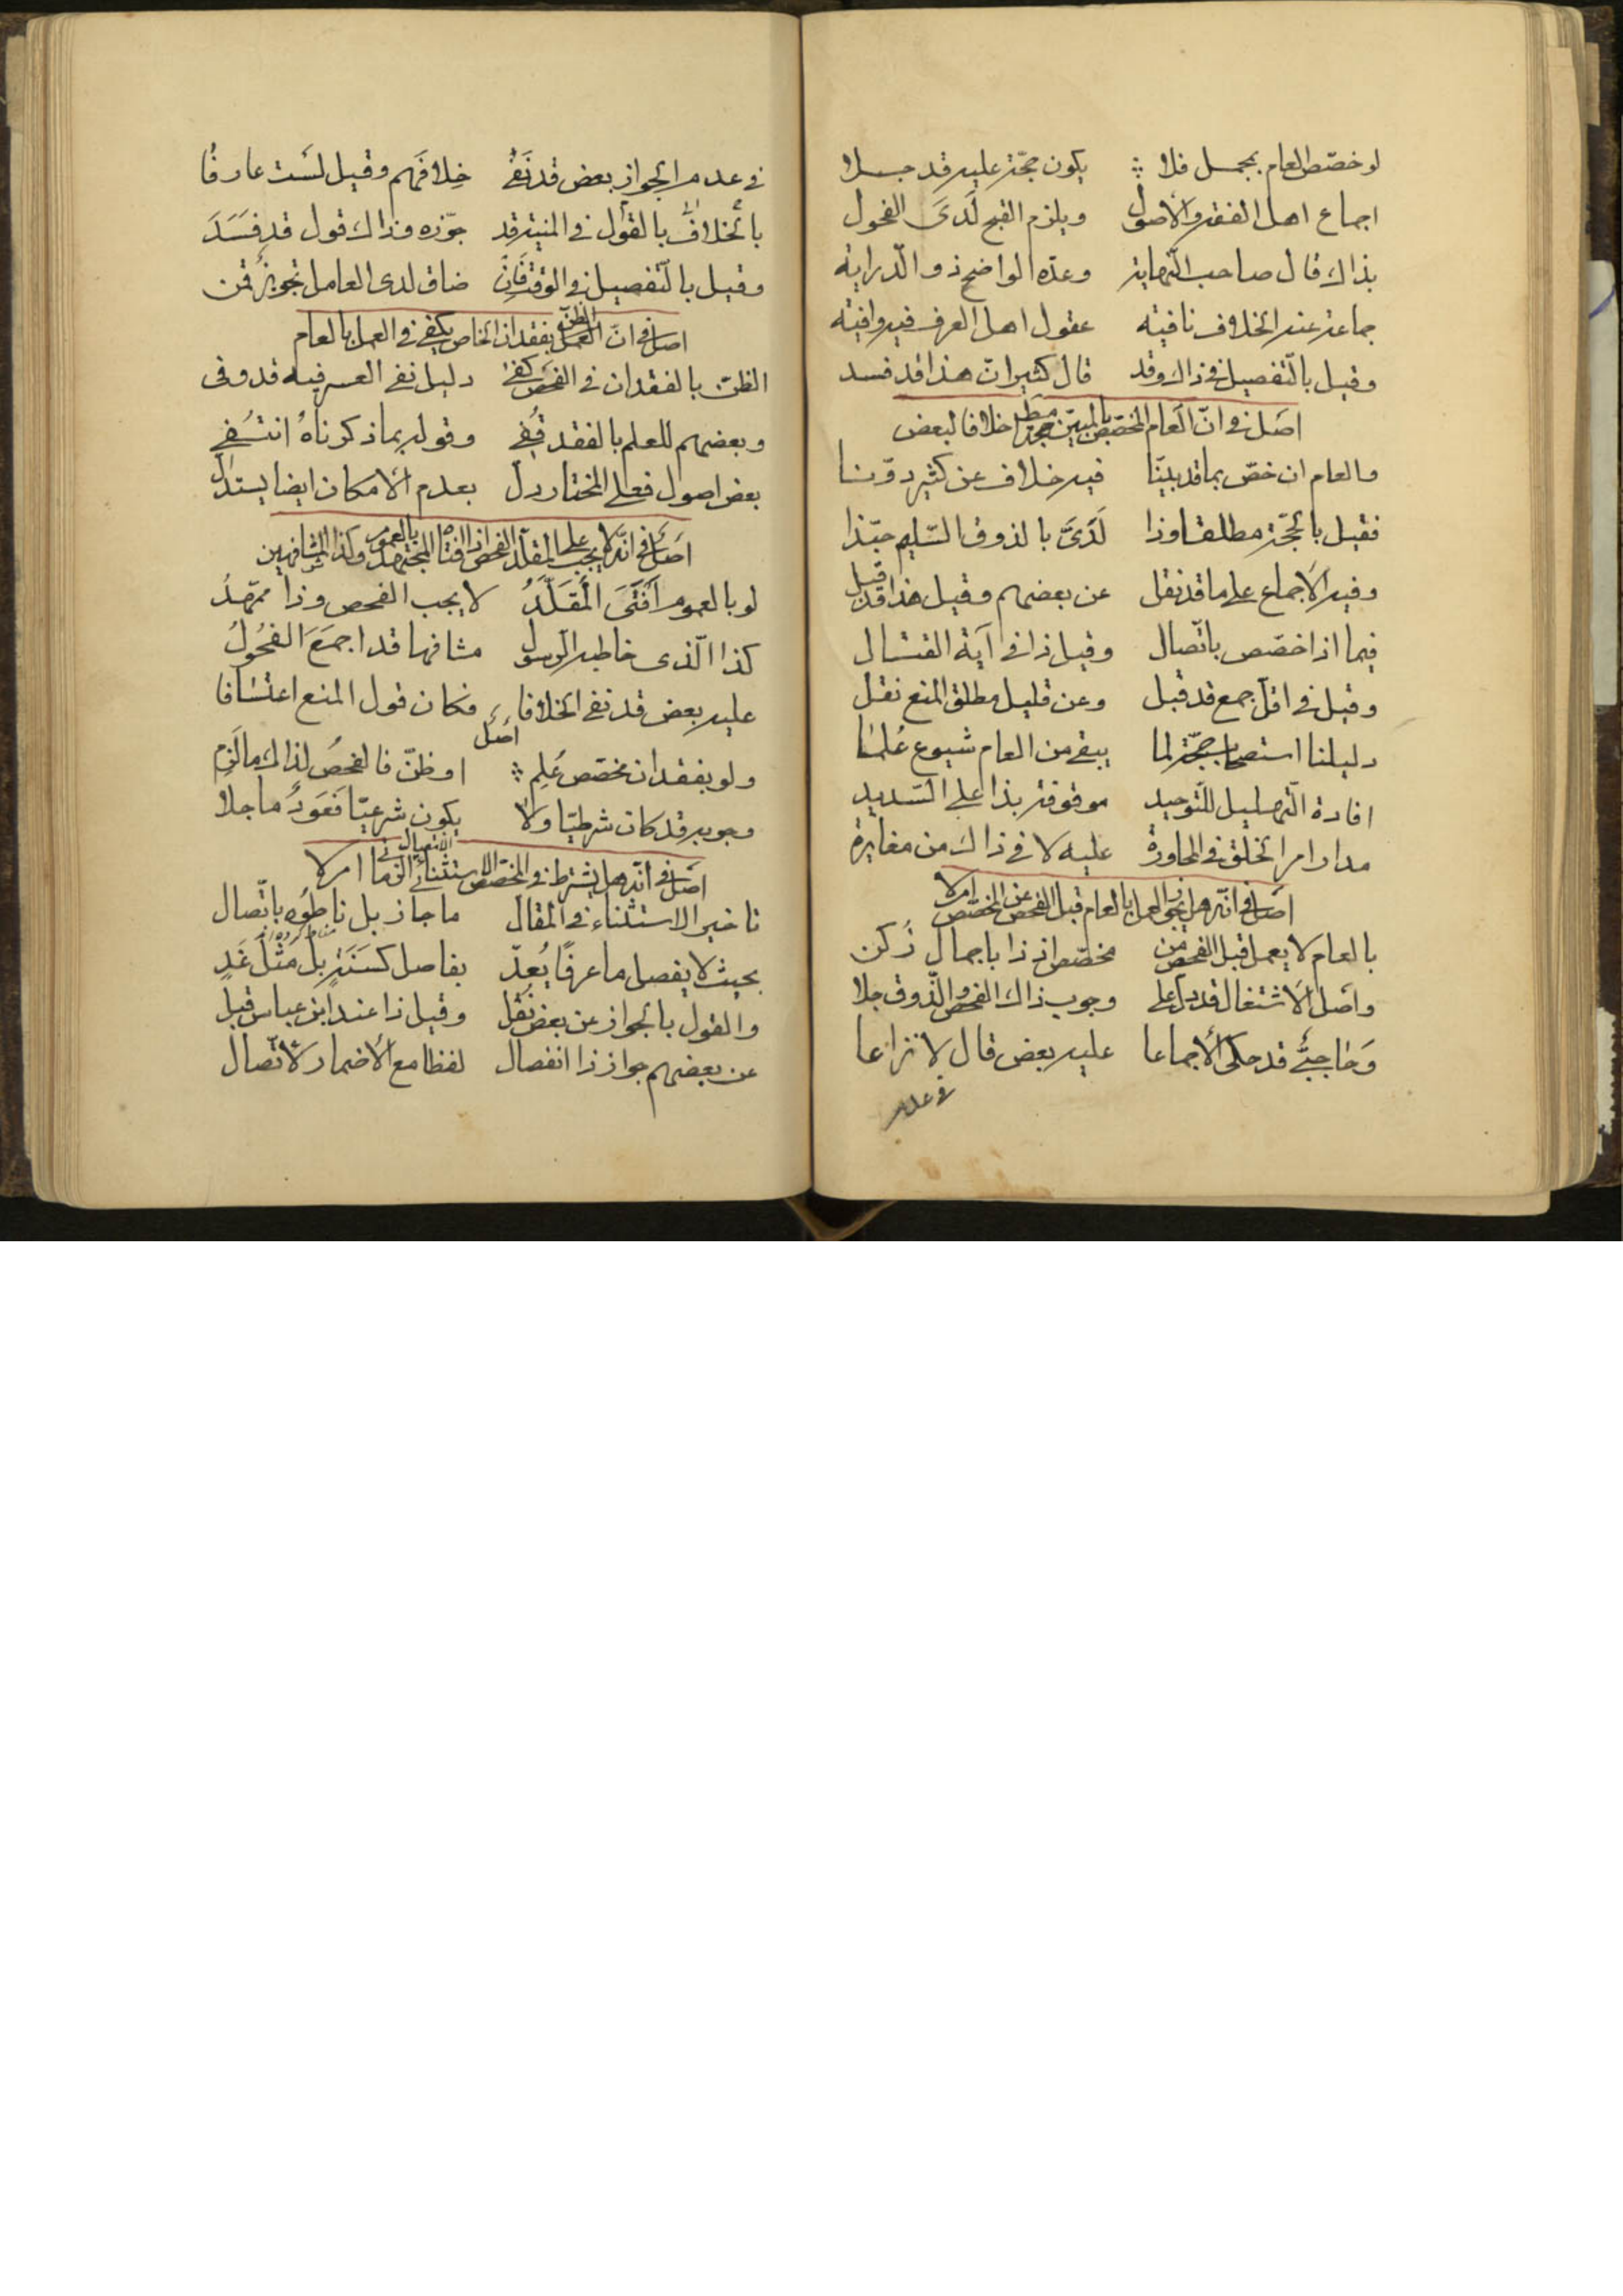 لو خصّص العام بمجمل فلا ؞ يكون حجّة عليه قد جبلا
اجماع اهل الفقه والأصول ويلزم القبح لَدَى الفحول
بذاك قال صاحب النّهاية وعدّه الواضح ذو الدّراية
جماعة عنه الخلاف نافية عقول اهل العرف فيه وافية
وقيل بالتّفصيل فى ذاك وقد قال كثير انّ هذا قد فسد
اصل فى انّ العام المخصّص بالمبيّن حجة مط خلافا لبعض
والعام ان خصّ بما قد بيّنا فيه خلاف عن كثير دوّنا
فقيل بالحجّة مطلقا وذا لَدَىَّ بالذوق السّليم حبّذا
وفيه الاجماع على ما قد نقل عن بعضهم وقيل هذا قد قبل
فيما اذا خصّص باتّصال وقيل ذا فى آية القتال
وقيل فى اقلّ جمع قد قبل وعن قليل مطلق المنع نقل
دليلنا استصحاب حجّة لما يبقى من العام شيوع عُلما
افادة التّهليل للتّوحيد موقوفة بذا على السّديد
مدار امر الخلق فى المحاورة عليه لا فى ذاك من مغايرة
اصل فى انّه هل يجوز العمل بالعام قبل الفحص عن المخصّص ام لا
بالعام لا يعمل قبل الفحص من مخصّص اذ ذا باجمال زُكن
واصل الاشتغال قد دلّ على وجوب ذاك الفحص والذّوق جلا
وَحاجبىّ قد حكى الأجماعا عليه بعض قال لا نزاعا
فى عدم
فى عدم الجواز بعض قد نَفى خِلافَهم وقيل لَست عارفا
بالخلاف بالقول فى المنية قد جوّزه وذاك قول قد فَسَدَ
وقيل بالتّفصيل فى الوقت فَاِن ضاق لدى العامل تجويزٌ قمن
اصل فى انّ الظنّ بفقدان الخاص يكفى فى العمل بالعام
الظنّ بالفقدان فى الفحص كفى دليل نفى العسر فيه قد وفى
وبعضهم للعلم بالفقد قُفى وقوله بما ذكرناهُ انتُفى
بعض اصول فعلى المختار دلّ بعدم الامكان ايضا يستدلّ
اصل فى انّه لا يجب على المقلّد الفحص اذا افتاه المجتهد بالعموم وكذا المشافهين
لو بالعموم اَفتَى المُقَلَّدُ لا يجب الفحص وذا ممهّدُ
كذا الّذى خاطبه الرّسول مشافها قد اجمَعَ الفحُولُ
عليه بعض قد نفى الخلافا فكان قول المنع اعتسافا
اصل
ولو بفقدان مخصّص عُلِم ؞ او ظنّ فالفحصُ لذاك ما لَزِم
وجوبه قد كان شرطيّا ولا يكون شرعيّا فَعَودٌ ما جلا
اصل فى انّه هل يشترط فى المخصّص الاستثنائى الاتصال فى الزمان ام لا
تاخير الاستثناء فى المقال ما جاز بل ناطُوه باتّصال
بحيث لا يفصل ما عرفًا يُعدّ بفاصل كسَنَةٍ بل مَثلَ غَدٍ
والقول بالجواز عن بعض نُقل وقيل ذا عند ابن عباس قبل
عن بعضهم جواز ذا انفصال لفظا مع الأضمار لاتّصال